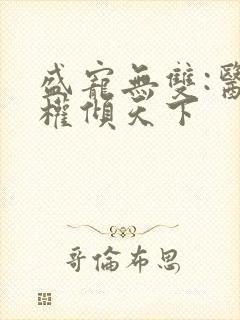 盛寵無雙:醫
權傾天下
哥倫布思